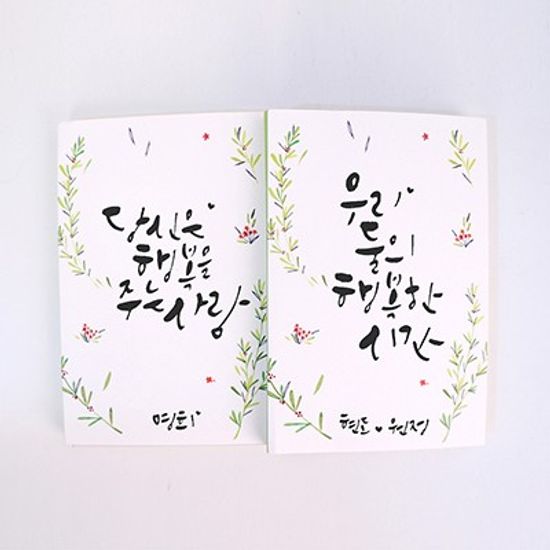 당신은
행복을
주는 사랑
명희
우리
둘의
행복한
시간
현도 ♥ 원정